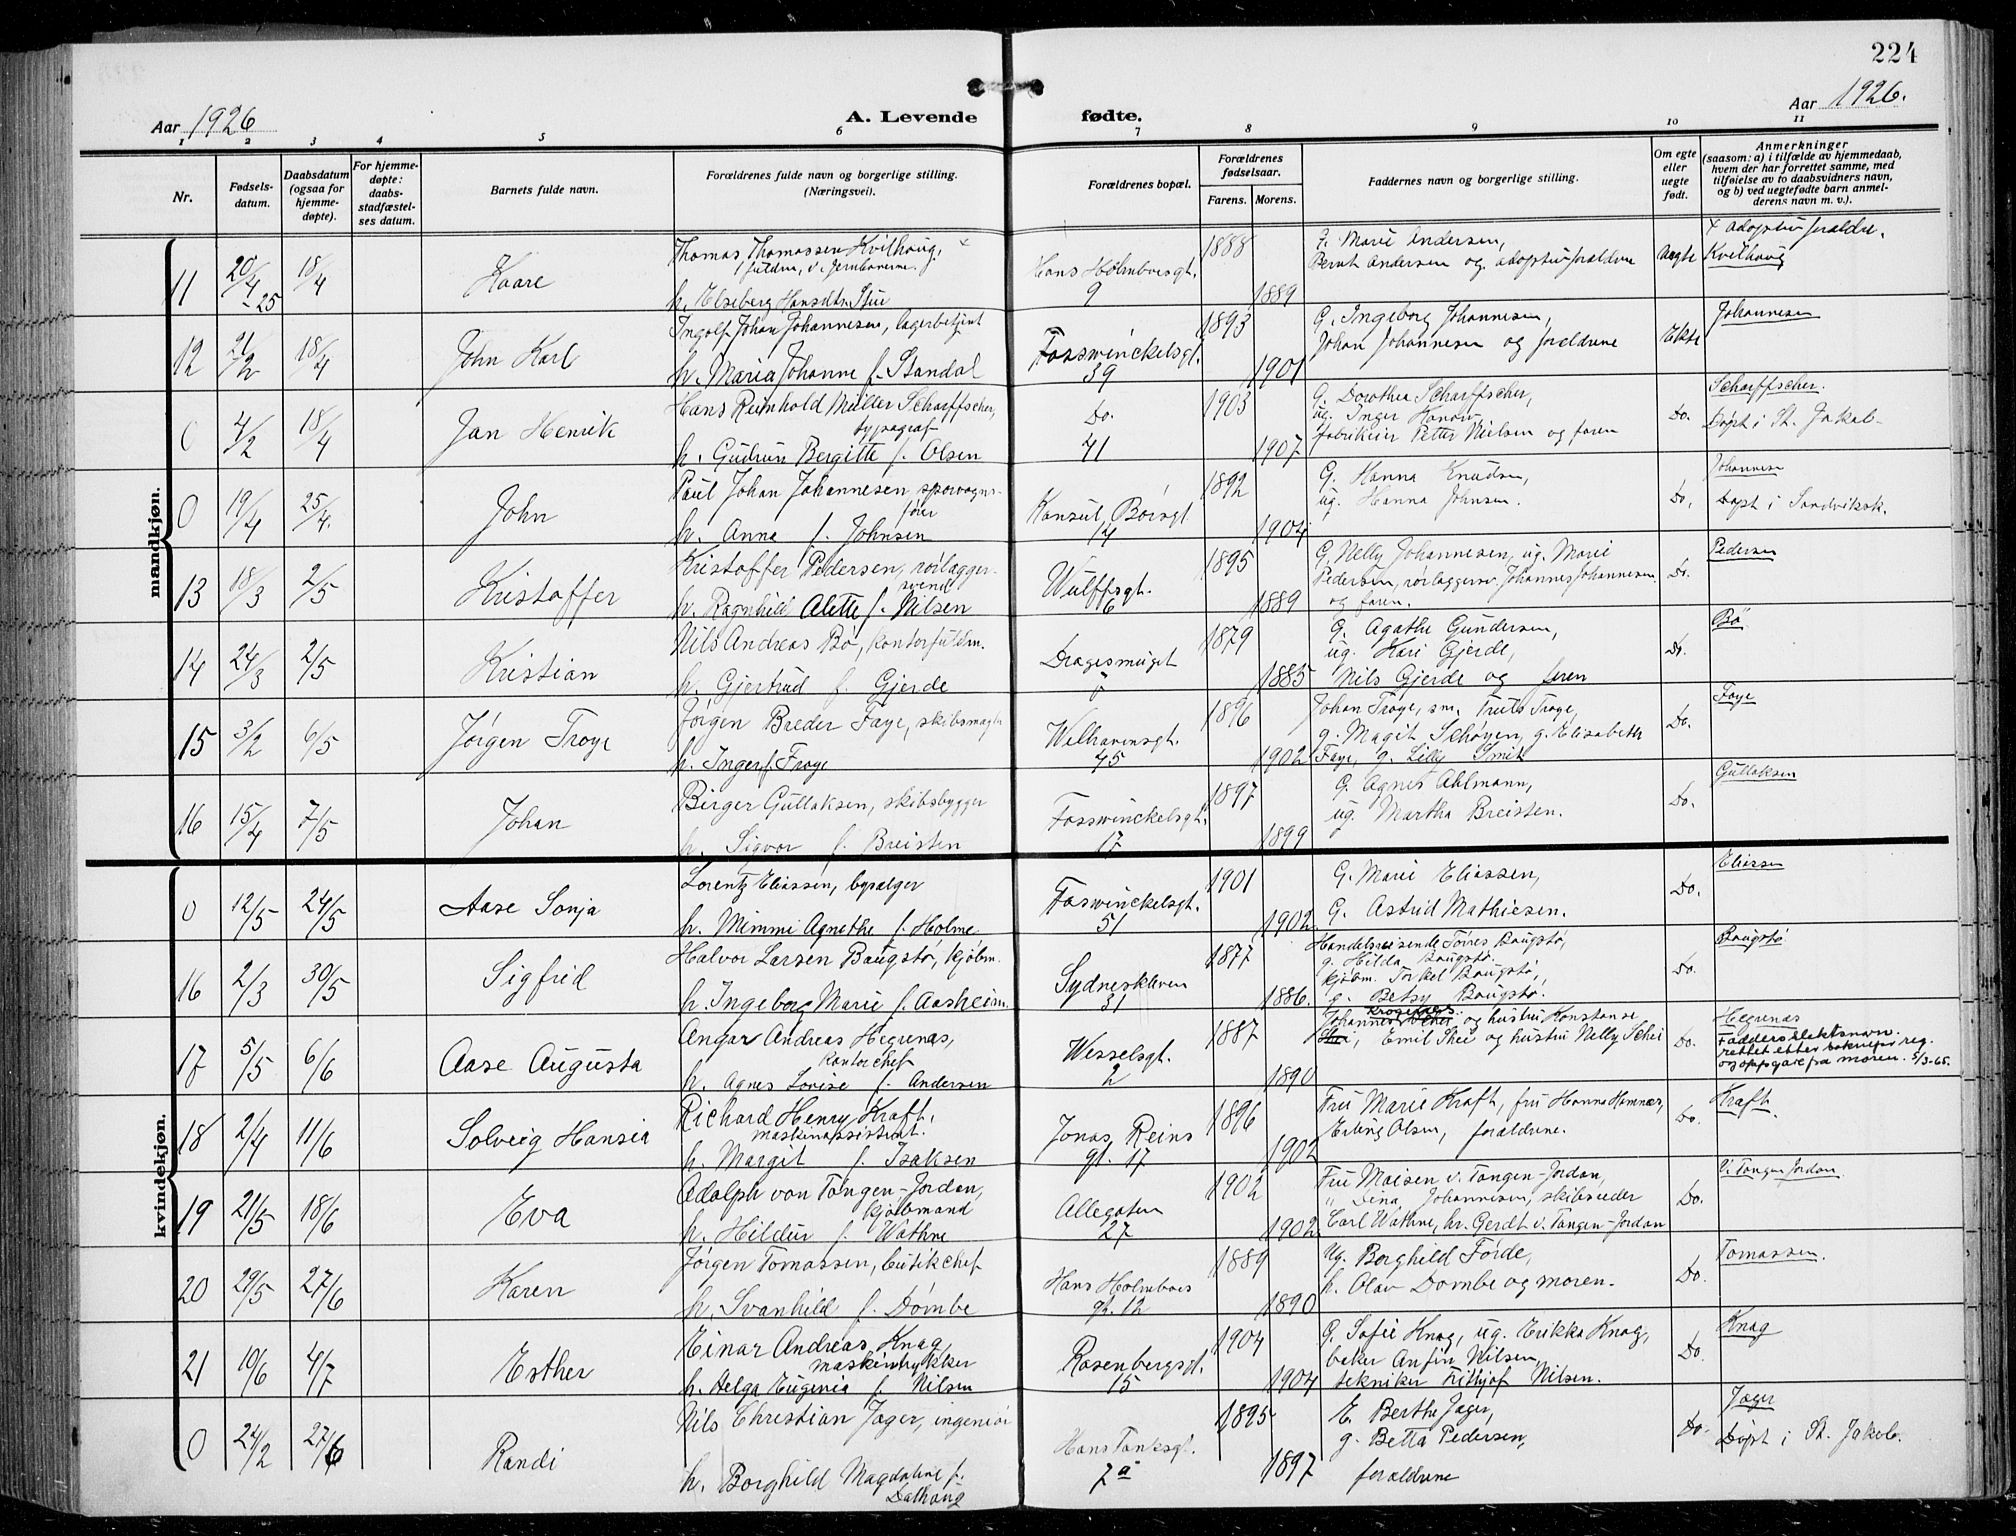 224
Aar 1926
A. Levende fødte.
Aar 1926.
1 2 3 4 5 6 7 8 9 10 11
Nr.
Fødsels-
datum.
Daabsdatum
(ogsaa for
hjemme-
døpte).
For hjemme-
døpte:
daabs-
stadfæstel-
ses datum.
Barnets fulde navn.
Forældrenes fulde navn og borgerlige stilling.
(Næringsvei).
Forældrenes bopæl.
Forældrenes
fødselsaar.
Farens. Morens.
Faddernes navn og borgerlige stilling.
Om egte
eller
uegte
født.
Anmerkninger
(saasom: a) i tilfælde av hjemmedaab,
hvem der har forrettet samme, med
tilføielse av to daabsvidners navn,
og b) ved uegtefødte barn anmel-
derens navn m. v.).
mandkjøn.
11 20/4-25 18/4 Kaare
Thomas Thomassen Kvilhaug, x
fuldm. v. jernbanerne.
h. Elseberg Hansdtr. Stue
Hans Holmboesgt.
9
1888 1889
F. Marie Andersen,
Bernt Andersen og adoptivforældrene
Uegte
x adoptivforældre.
Kvilhaug
12 21/2 18/4 John Karl
Ingolf Johan Johannesen, lagerbetjent
h. Maria Johanne f. Standal
Fosswinckelsgt.
39
1893 1901
G. Ingeborg Johannesen,
Johan Johannesen og foreldrene
Ekte
Johannesen
0 4/2 18/4 Jan Henrik
Hans Reinhold Müller Scharffscher,
typograf
h. Gudrun Bergitte f. Olsen
Do.
41
1903 1907
G. Dorothea Scharffscher,
ug. Inger Hansen
fabrikeier Petter Nielsen og faren
Do.
Scharffscher.
Døpt i St. Jakob.
0 19/4 25/4. John
Paul Johan Johannesen sporvogns-
fører
h. Anna f. Johnsen
Konsul Børsgt
14
1892 1904
G. Hanna Knudsen,
ug. Hanna Johnsen.
Do.
Johannesen
Døpt i Sandviksk.
13 18/3 2/5 Kristoffer
Kristoffer Pedersen, rørlægger-
svend
h. Ragnhild Alette f. Nilsen
Wulffsgt.
6
1895 1889
G. Nelly Johannesen, ug. Marie
Pedersen, rørlæggersv. Johannes Johannesen
og faren.
Do.
Pedersen
14 24/3 2/5 Kristian
Nils Andreas Bø, kontorfuldm.
h. Gjertrud f. Gjerde
Dragesmuget
1879 1885
G. Agathe Gundersen,
ug. Kari Gjerde,
Nils Gjerde og faren
Do.
Bø
15 3/2 6/5 Jørgen Troye
Jørgen Breder Faye, skibsmægler
h. Inger f. Troye
Welhavensgt.
45
1896 1902
Johan Troye, sm. Truls Troye,
g. Magit Schøyen, g. Elisabeth
Faye, g. Lilly Smith
Do.
Faye
16 15/4 7/5 Johan
Birger Gullaksen, skibsbygger
h. Sigvor f. Breisten
Fosswinckelsgt.
17
1897 1899
G. Agnes Ahlmann,
ug. Martha Breisten.
Do.
Gullaksen
kvindekjøn.
0 12/5 24/5 Aase Sonja
Lorentz Eliassen, bysælger
h. Mimmi Agnethe f. Holme
Fosswinckelsgt.
51
1901 1902
G. Marie Eliassen,
G. Astrid Mathiesen.
Do.
Eliassen
16 2/3 30/5 Sigfrid
Halvor Larsen Baugstø, kjøbm.
h. Ingeborg Marie f. Aasheim.
Sydneskleven
31
1877 1886.
Handelsreisende Torres Baugstø,
g. Hilda Baugstø.
kjøbm. Torkel Baugstø,
g. Betsy Baugstø.
Do.
Baugstø
17 5/5 6/6 Aase Augusta
Ansgar Andreas Hegrenæs,
kontorchef
h. Agnes Lovise f. Andersen
Wesselsgt.
2
1887 1890
Johannes og hustru Konstanse
Emil Skei og hustru Nelly Schei
Do.
Hegrenæs
Fadders slektsnavn
rettet etter boknings reg.
og oppgave fra moren. 5/3-65.
18 2/4 11/6 Solveig Hansia
Richard Henry Kraft,
maskinassistent.
h. Margit f. Isaksen
Jonas Reins
gt. 17
1896 1902
Fru Marie Kraft, fru Hanna Hamnæs,
Erling Olsen, forældrene.
Do.
Kraft
19 21/5 18/6 Eva
Adolph von Tangen-Jordan,
kjøbmand
h. Hildur f. Wathne
Allegaten
27
1902 1902
Fru Maisen v. Tangen-Jordan,
" Lina Johannesen, skibsreder
Carl Wathne, hr. Gerdt v. Tangen-Jordan
Do.
V. Tangen Jordan.
20 29/5 27/6 Karen
Jørgen Tomassen, butikchef
h. Svanhild f. Dombe
Hans Holmboes
gt. 12
1889 1890
Ug. Borghild Førde,
h. Olav Dombe og moren.
Do.
Tomassen.
21 10/6 4/7 Esther
Einar Andreas Knag,
maskintrykker
h. Helga Eugenia f. Nilsen
Rosenbergsgt.
15
1904 1904
G. Sofie Knag, ug. Erikka Knag,
beker Anfin Nilsen,
tekniker Fithjof Nilsen.
Do.
Knag
0 24/2 27/6 Randi
Nils Christian Jager, ingeniør
h. Borghild Magdaline f.
Dalhaug
Hans Tanksgt.
7a
1895 1897
E. Berthe Jager,
g. Betta Pedersen,
forældrene
Do.
Jager
Døpt i St. Jakob.